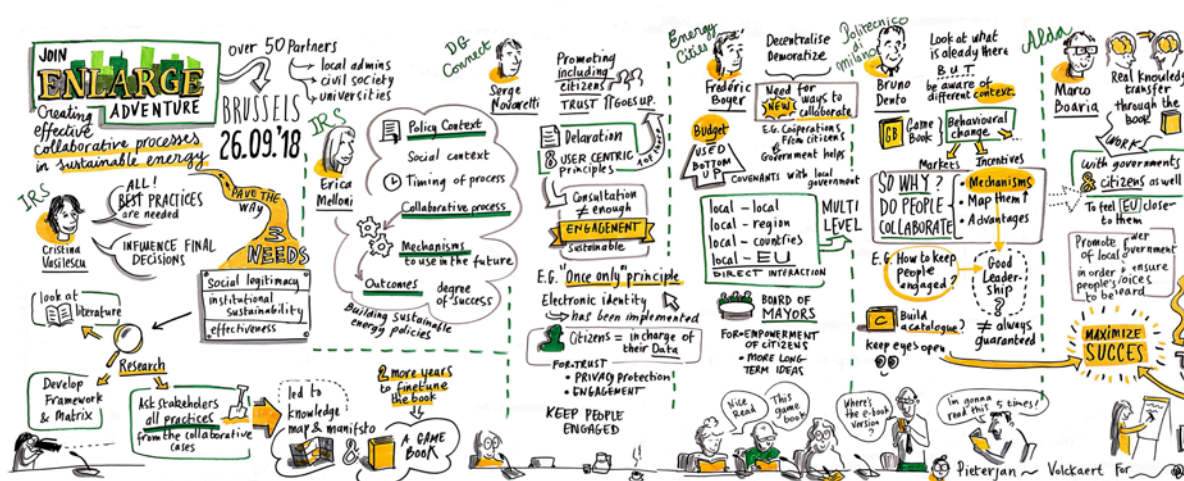 JOIN
ENLARGE
ADVENTURE
Creating
effective
collaborative processes
in sustainable energy
over 50 Partners
local admins
civil society
universities
BRUSSELS
26.09.'18
IRS
Cristina
Vasilescu
ALL!
BEST PRACTICES
are needed
INFLUENCE FINAL
DECISIONS
PAVE THE
WAY
3
NEEDS
social legitimacy
institutional
sustainability
effectiveness
look at
literature
Research
Develop
Framework
& Matrix
Ask stakeholders
all practices
from the collaborative
cases
led to
knowledge
map & manifsto
&
2 more years
to finetune
the book
A GAME
BOOK
IRS
Erica
Melloni
Policy Context
Social context
Timing of process
Collaborative process
Mechanisms
to use in the future
Outcomes
degree
of success
Building sustainable
energy policies
DG-
Connect
Serge
Novaretti
Promoting
including
citizens
TRUST IT GOES UP.
Delaration
8 USER CENTRIC
principles
Consultation
≠ enough
ENGAGEMENT
sustainable
E.G. "Once only" principle
Electronic identity
has been implemented
Citizens = in charge of
their Data
FOR TRUST
• PRIVACY PROTECTION
• ENGAGEMENT
KEEP PEOPLE
ENGAGED
Energy
Cities
Frédéric
Boyer
Decentralise
Demoratize
Need for
NEW ways to
collaborate
E.G. Cooperations
From citizens
& Government helps
Budget
USED
BOTTOM
UP
COVENANTS with local
government
local – local
local – region
local – countries
local – EU
DIRECT INTERACTION
MULTI
LEVEL
BOARD OF
MAYORS
FOR EMPOWERMENT
OF CITIZENS
• MORE LONG
TERM IDEAS
Nice
Read
This
game
book
Politecnico
di
Milano
Bruno
Dento
Look at what
is already there
BUT
be aware of
different context.
GB
Game
Book
Behavioural
change
Markets
Incentives
SO WHY?
DO PEOPLE
COLLABORATE
• Mechanisms
• Map them
• Advantages
E.G. How to keep
people
engaged?
Good
Leader-
ship
?
≠ always
guaranteed
C
Build
a catalogue?
Keep eyes open
Where's
the e-book
version
?
I'm gonna
read this 5 times!
Alda
Marco
Boaria
Real Knowledge
transfer
through the
book
WORK
with governments
& citizens as well
To feel EU closer
to them
Promote
of local government
in order ensure
people's voices
to be heard
MAXIMIZE
SUCCES
Pieterjan ~ Volckaert For